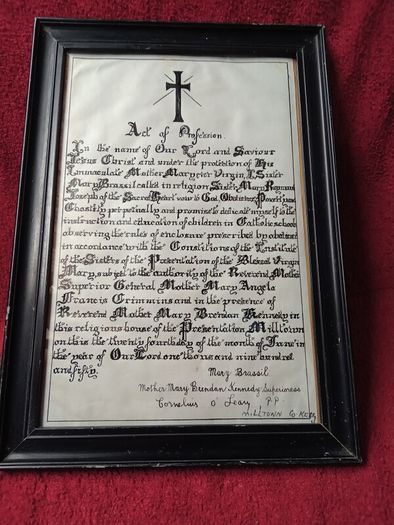 Act of Profession.
In the name of Our Lord and Saviour
Jesus Christ and under the protection of His
Immaculate Mother Mary ever Virgin, I, Sister
Mary Brassil called in religion Sister Mary
Joseph of the Sacred Heart vow to God, Obedience, Poverty and
Chastity perpetually and promise to dedicate myself to the
instruction and education of children in Catholic school
observing the rules of enclosure prescribed by obedience
in accordance with the Constitutions of the Institute
of the Sisters of the Presentation of the Blessed Virgin
Mary, subject to the authority of the Reverend Mother
Superior General Mother Mary Angela
Francis Crimmins and in the presence of
Reverend Mother Mary Brendan Kennedy in
this religious house of the Presentation Milltown
on this the twenty fourth day of the month of June in
the year of Our Lord one thousand nine hundred
and fifty.
Mary Brassil
Mother Mary Brendan Kennedy Superioress
Cornelius O'Leary P.P
MILLTOWN Co Kerry